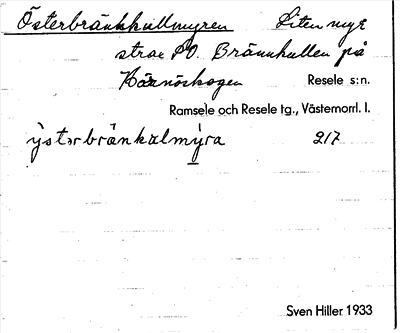 Österbrännkullmyren Liten myr
strax SO. Brännkullen på
Härnöskogen Resele s:n.
Ramsele och Resele tg., Västernorrl. l.
ÿstərbränkalmýra 217
Sven Hiller 1933